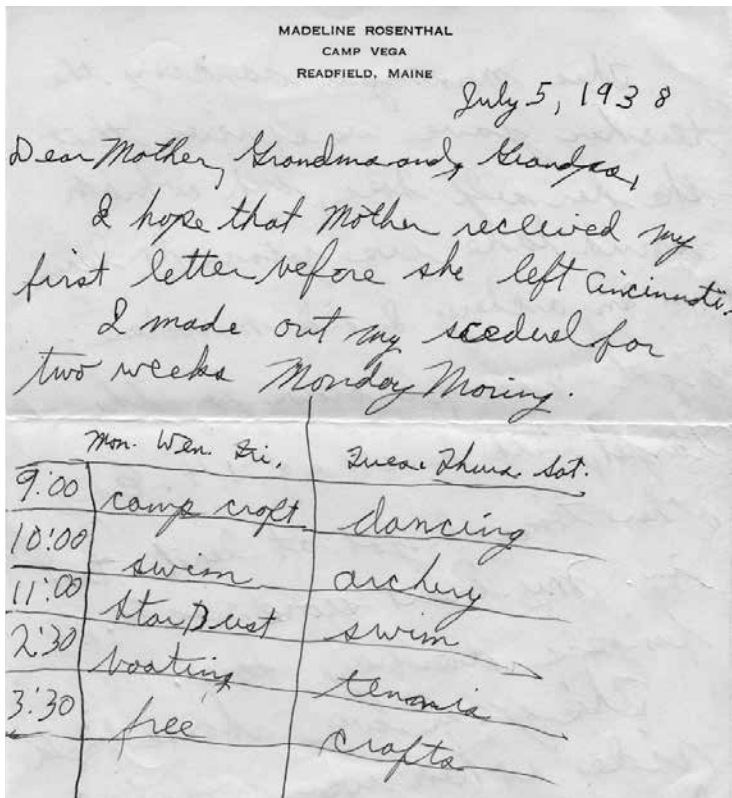 MADELINE ROSENTHAL
CAMP VEGA
READFIELD, MAINE
July 5, 1938
Dear Mother, Grandma and, Grandpa,
I hope that Mother recieved my
first letter before she left Cincinnati.
I made out my sceduel for
two weeks Monday Moring.
Mon. Wen. Fri. Tues. Thurs. Sat.
9:00 camp craft dancing
10:00 swim archery
11:00 StarDust swim
2:30 boating tennis
3:30 free crafts